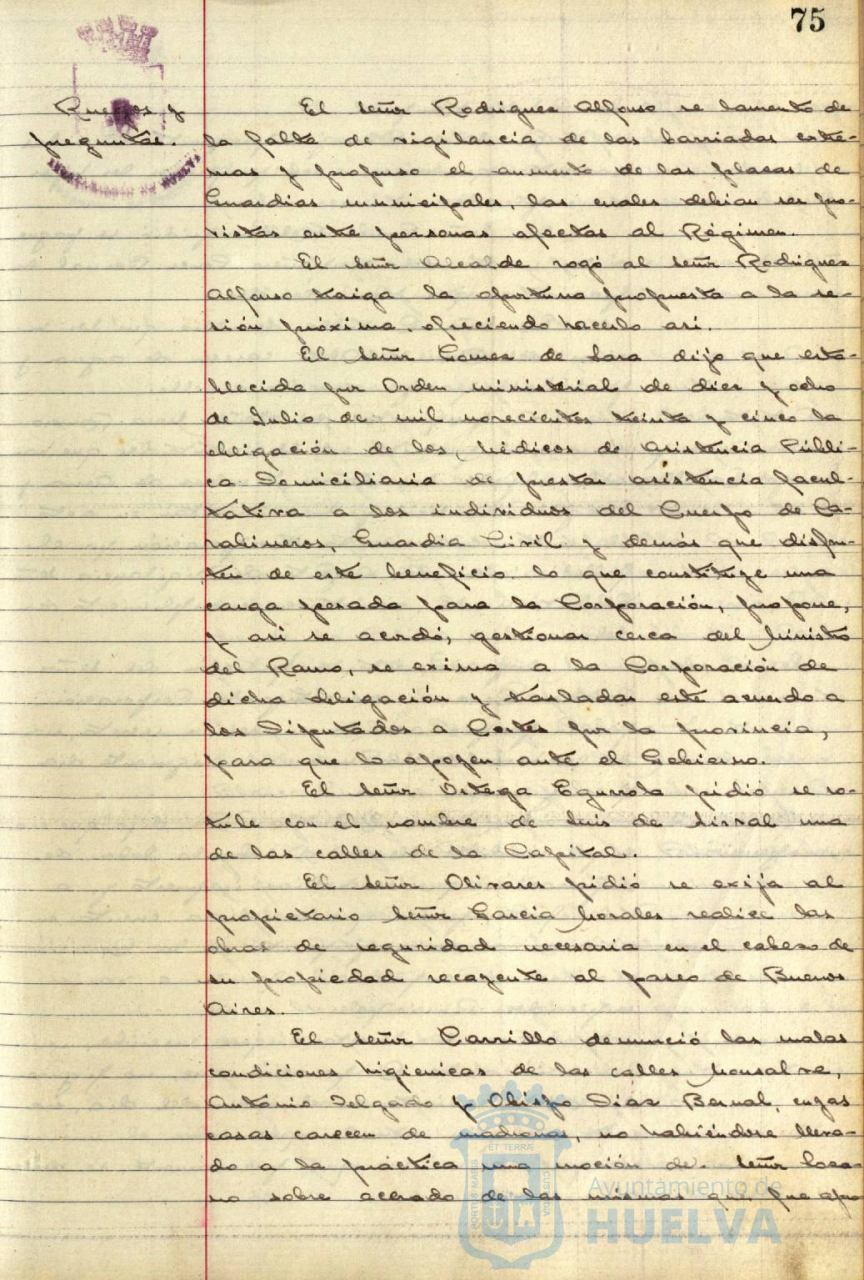 75
Ruegos y
preguntas.
AYUNTAMIENTO DE HUELVA
El señor Rodriguez Alfonso se lamentó de
la falta de vigilancia de las barriadas extre-
mas y propuso el aumento de las plazas de
Guardias municipales, las cuales debian ser pro-
vistas entre personas afectas al Régimen.
El señor Alcalde rogó al señor Rodriguez
Alfonso traiga la oportuna propuesta a la se-
sión próxima, ofreciendo hacerlo asi.
El señor Gomez de Lara dijo que esta-
blecida por Orden ministerial de diez y ocho
de Julio de mil novecientos treinta y cinco la
obligación de los Médicos de Asistencia Públi-
ca Domiciliaria de prestar asistencia facul-
tativa a los individuos del Cuerpo de Ca-
rabineros, Guardia Civil y demás que disfru-
ten de este beneficio lo que constituye una
carga pesada para la Corporación, propone,
y asi se acordó, gestionar cerca del Ministro
del Ramo, se exima a la Corporación de
dicha obligación y trasladar este acuerdo a
los Diputados a Cortes por la provincia,
para que lo apoyen ante el Gobierno.
El señor Ortega Egurrola pidió se ro-
tule con el nombre de Luis de Sirval una
de las calles de la Capital.
El señor Olivares pidió se exija al
propietario señor Garcia Morales realice las
obras de seguridad necesaria en el cabezo de
su propiedad recayente al paseo de Buenos
Aires.
El señor Carrillo denunció las malas
condiciones higienicas de las calles Monsalve,
Antonio Delgado y Obispo Diaz Bernal, cuyas
casas carecen de madronas, no habiéndose lleva-
do a la práctica una moción del señor Loza-
no sobre acerado de las mismas que fue apro
PORTUS MARIS ET TERRAE CUSTODIA
Ayuntamiento de
HUELVA